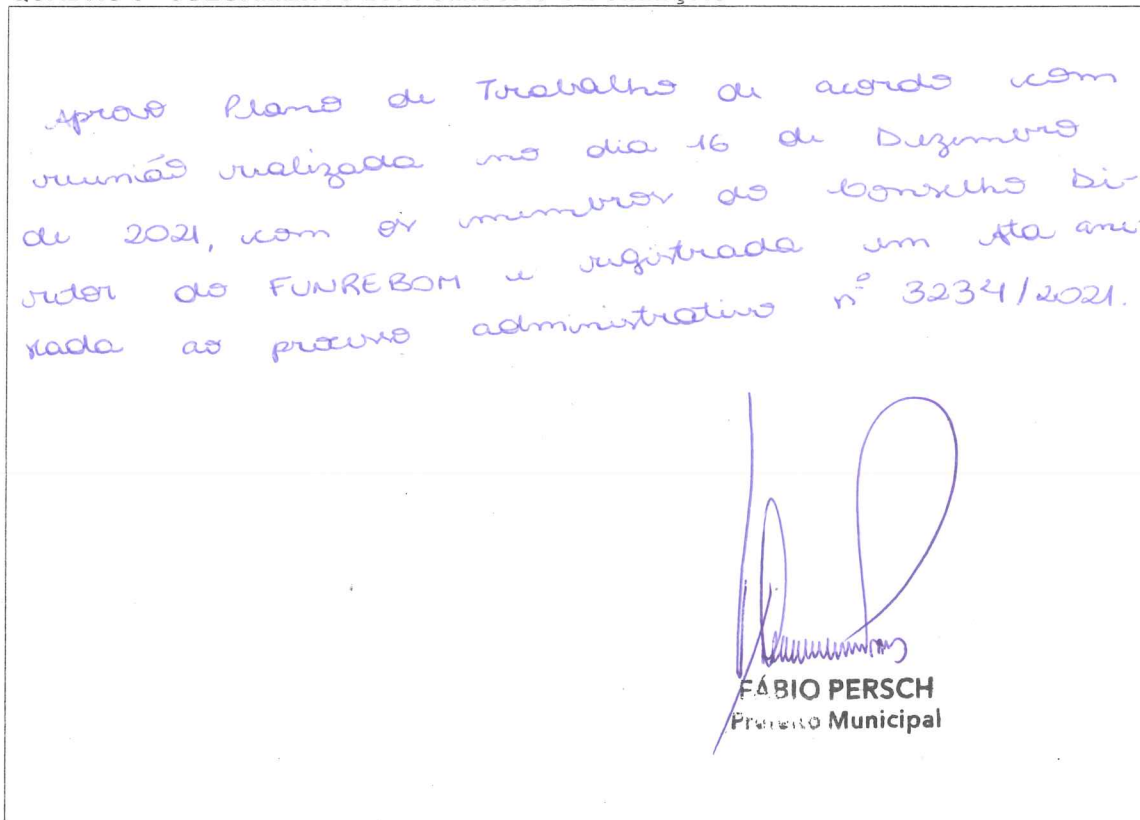 Aprovo Plano de Trabalho de acordo com
reunião realizada no dia 16 de Dezembro
de 2021, com os membros do Conselho Di-
retor do FUNREBOM e registrada em Ata ane-
xada ao processo administrativo nº 3234/2021.
FÁBIO PERSCH
Prefeito Municipal